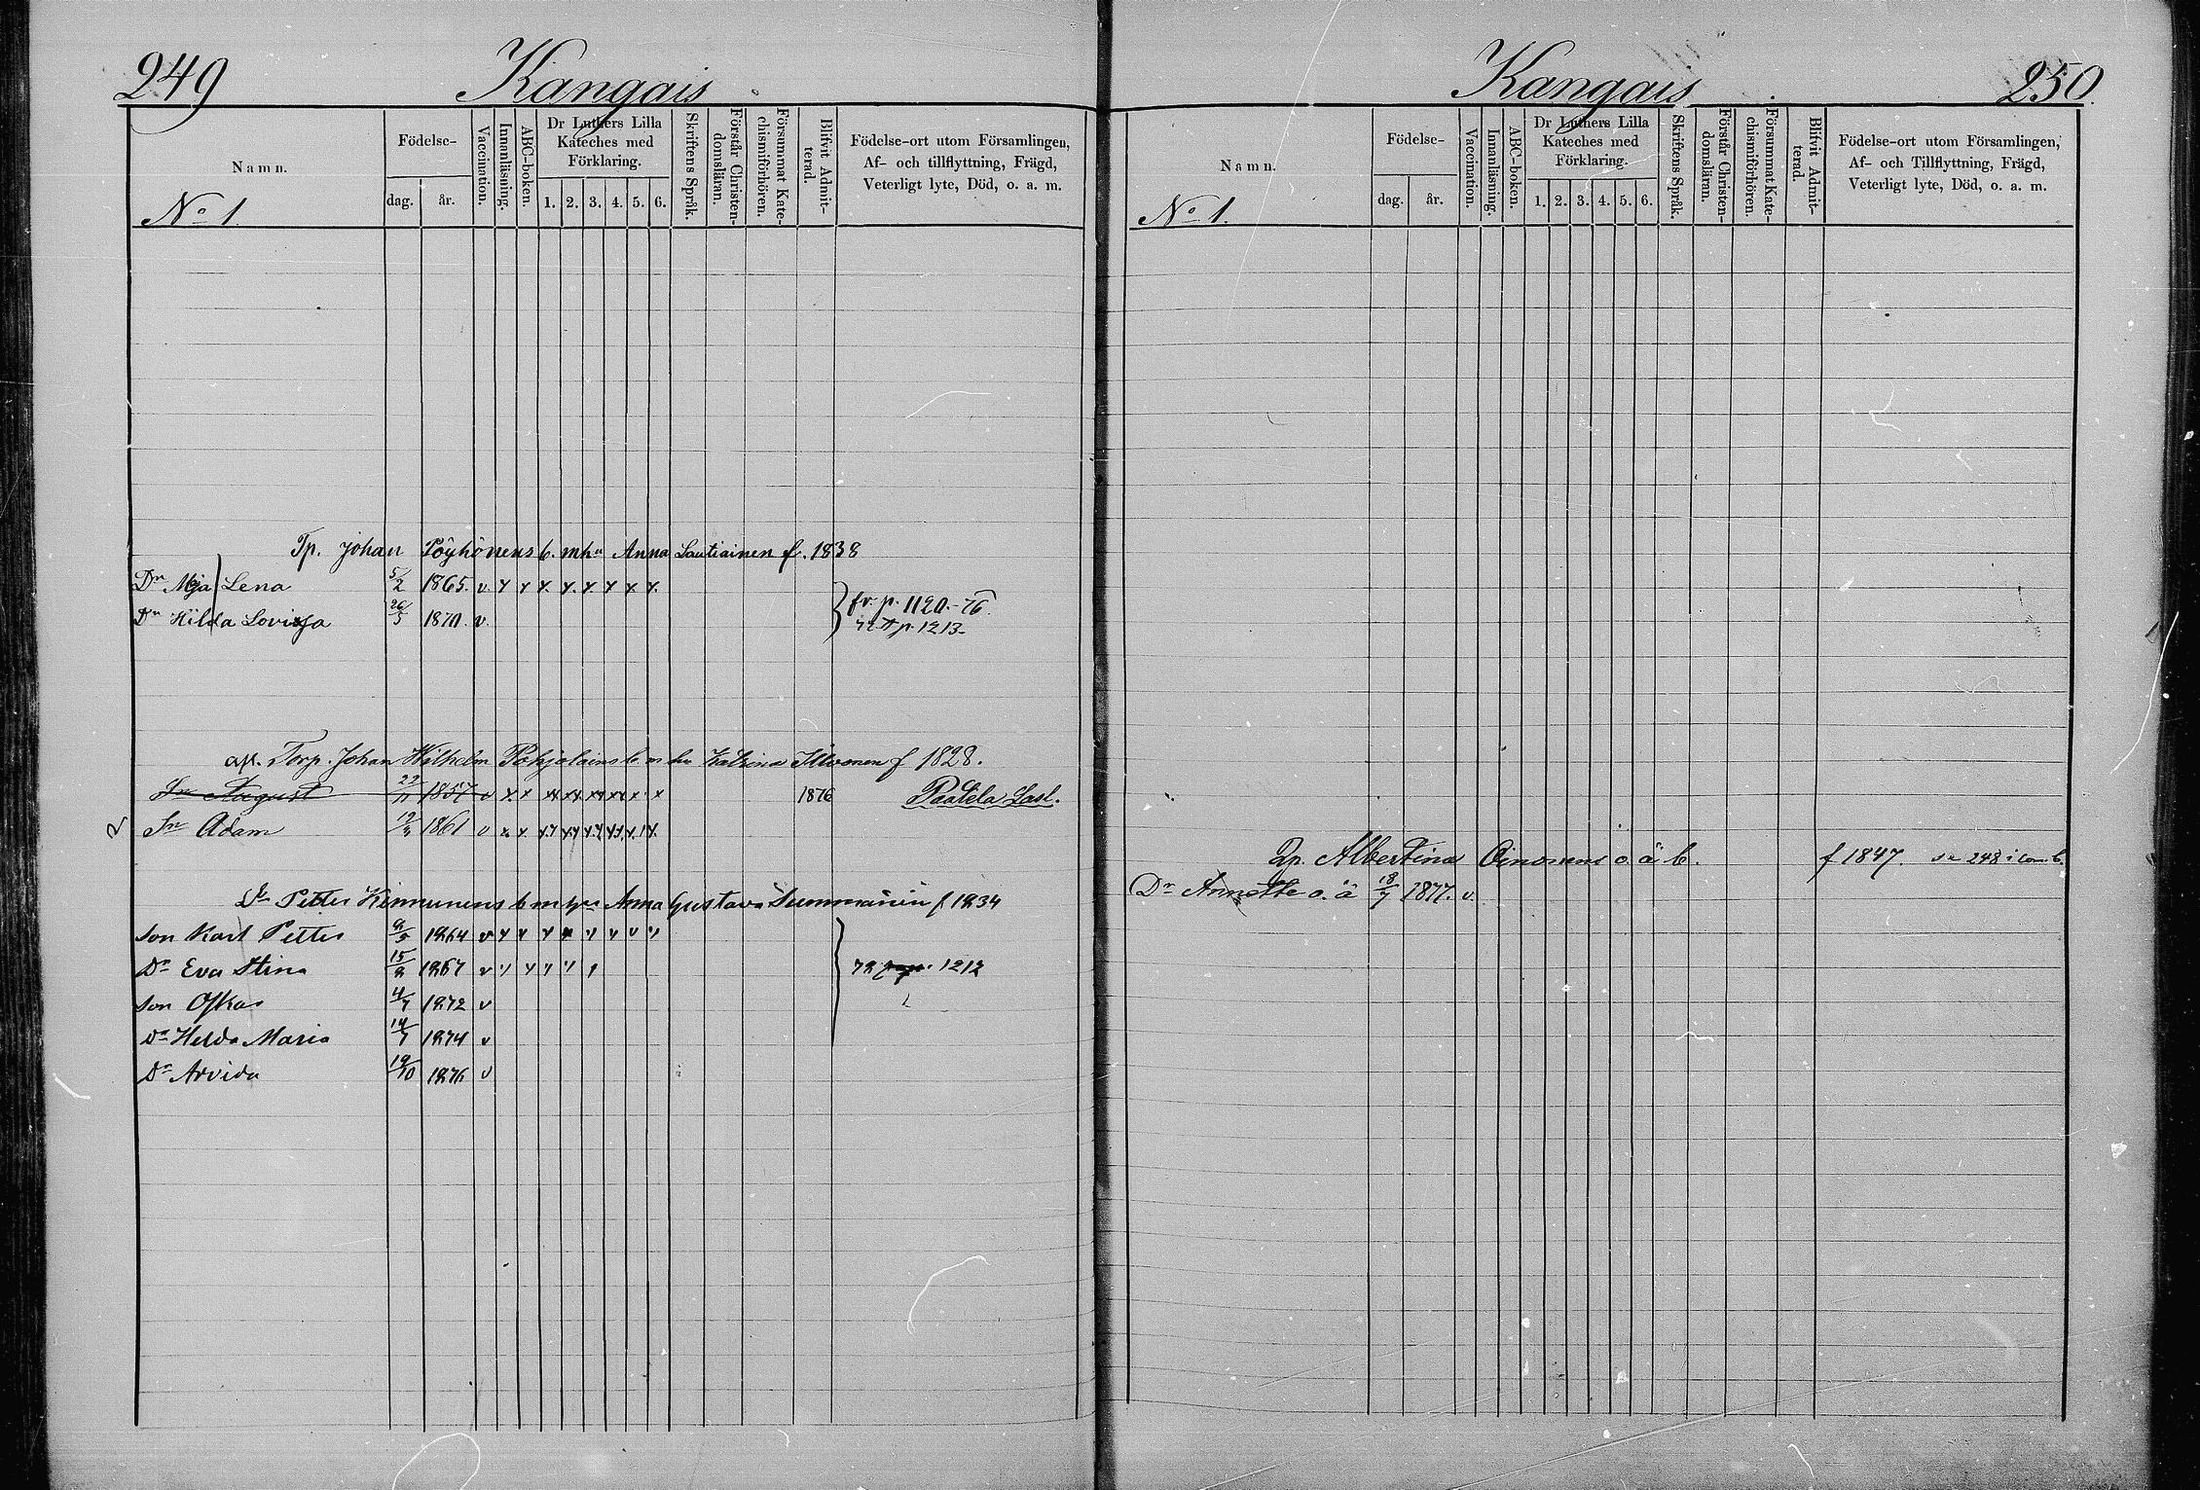 249 Kangais
Namn.
No 1.
Födelse-
dag. år.
Vaccination.
Innanläsning.
ABC-boken.
Dr Luthers Lilla
Kateches med
Förklaring.
1. 2. 3. 4. 5. 6.
Skriftens Språk.
Förstår Christen-
domsläran.
Försummat Kate-
chismiförhören.
Blifvit Admit-
terad.
Födelse-ort utom Församlingen,
Af- och tillflyttning, Frägd,
Veterligt lyte, Död, o. a. m.
Tp. Johan Pöyhönens b. m hu Anna Lautiainen f. 1838
Dr Maja Lena 5/2 1865. v x x x x x x x x
Dr Hilda Lovisa 26/3 1870. v.
fr. p. 1120.-76
p. 1213
Torp. Johan Wilhelm Pohjolains b m hu Katrina f 1828.
Sn August 22/11 1857 v x x xx xx xx xx x x 1876 Paatela Lasl.
Sn Adam 19/9 1861 v x x
Petter Kinnunens b m hu Anna Gustava Summanen f 1834
Son Karl Petter 9/5 1864 v
Dr Eva Stina 15/8 1867 v
78 1212
Son Oskar 4/7 1872 v
Dr Helda Maria 14/7 1874 v
Dr Arvida 19/10 1876 v
Kangais 250.
Namn.
No 1.
Födelse-
dag. år.
Vaccination.
Innanläsning.
ABC-boken.
Dr Luthers Lilla
Kateches med
Förklaring.
1. 2. 3. 4. 5. 6.
Skriftens Språk.
Förstår Christen-
domsläran.
Försummat Kate-
chismiförhören.
Blifvit Admit-
terad.
Födelse-ort utom Församlingen,
Af- och Tillflyttning, Frägd,
Veterligt lyte, Död, o. a. m.
Albertina Oinonens o. ä b. f 1847. se 248 i com b.
Dr Annette o. ä 18/7 1877. v.